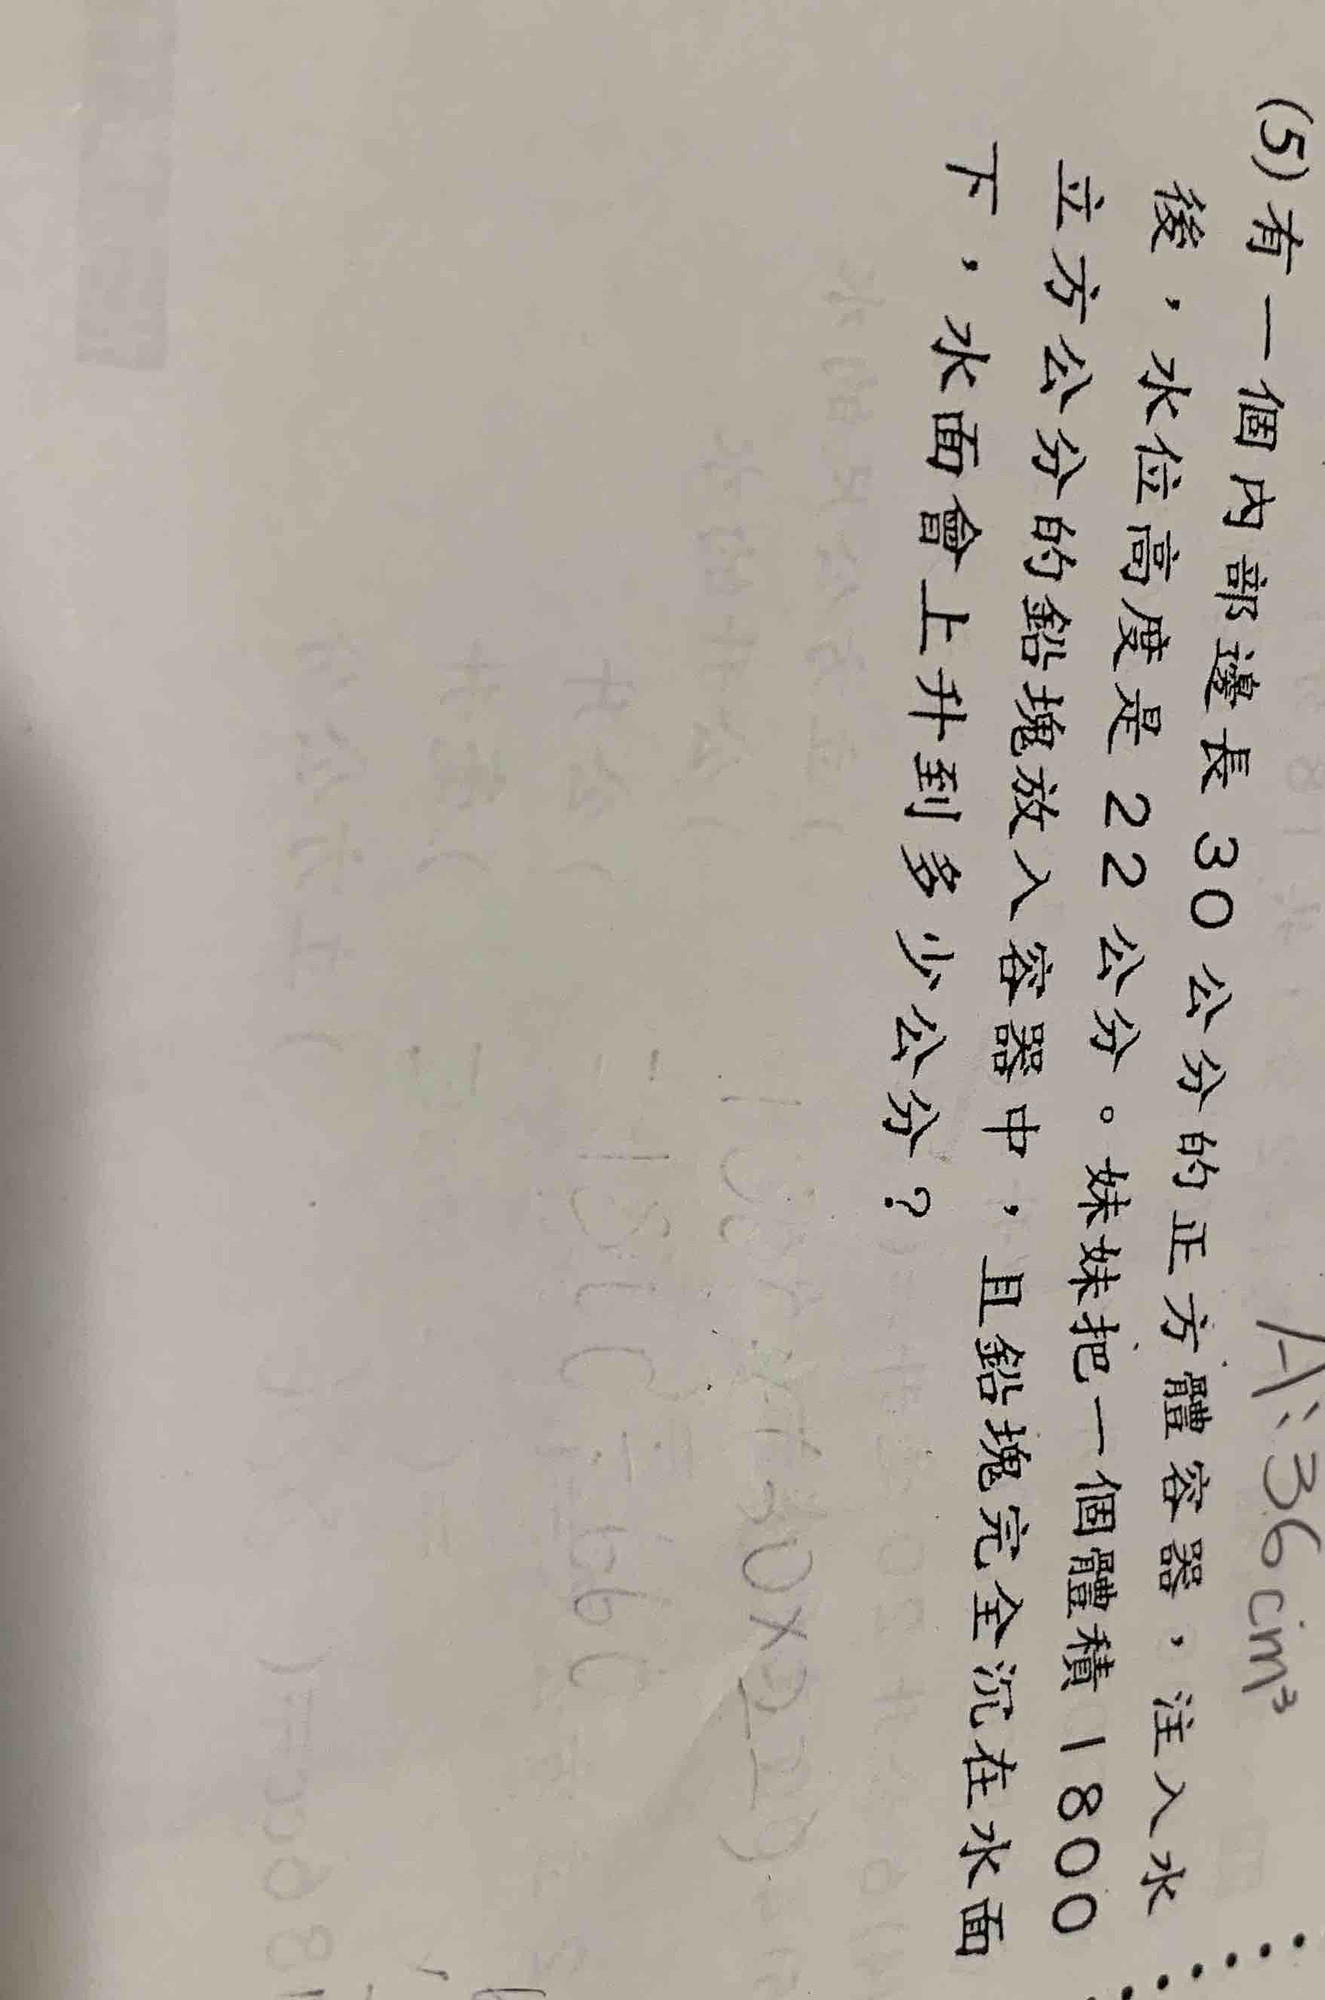 A:36cm³
(5)有一個內部邊長30公分的正方體容器，注入水
後，水位高度是22公分。妹妹把一個體積1800
立方公分的鉛塊放入容器中，且鉛塊完全沉在水面
下，水面會上升到多少公分？